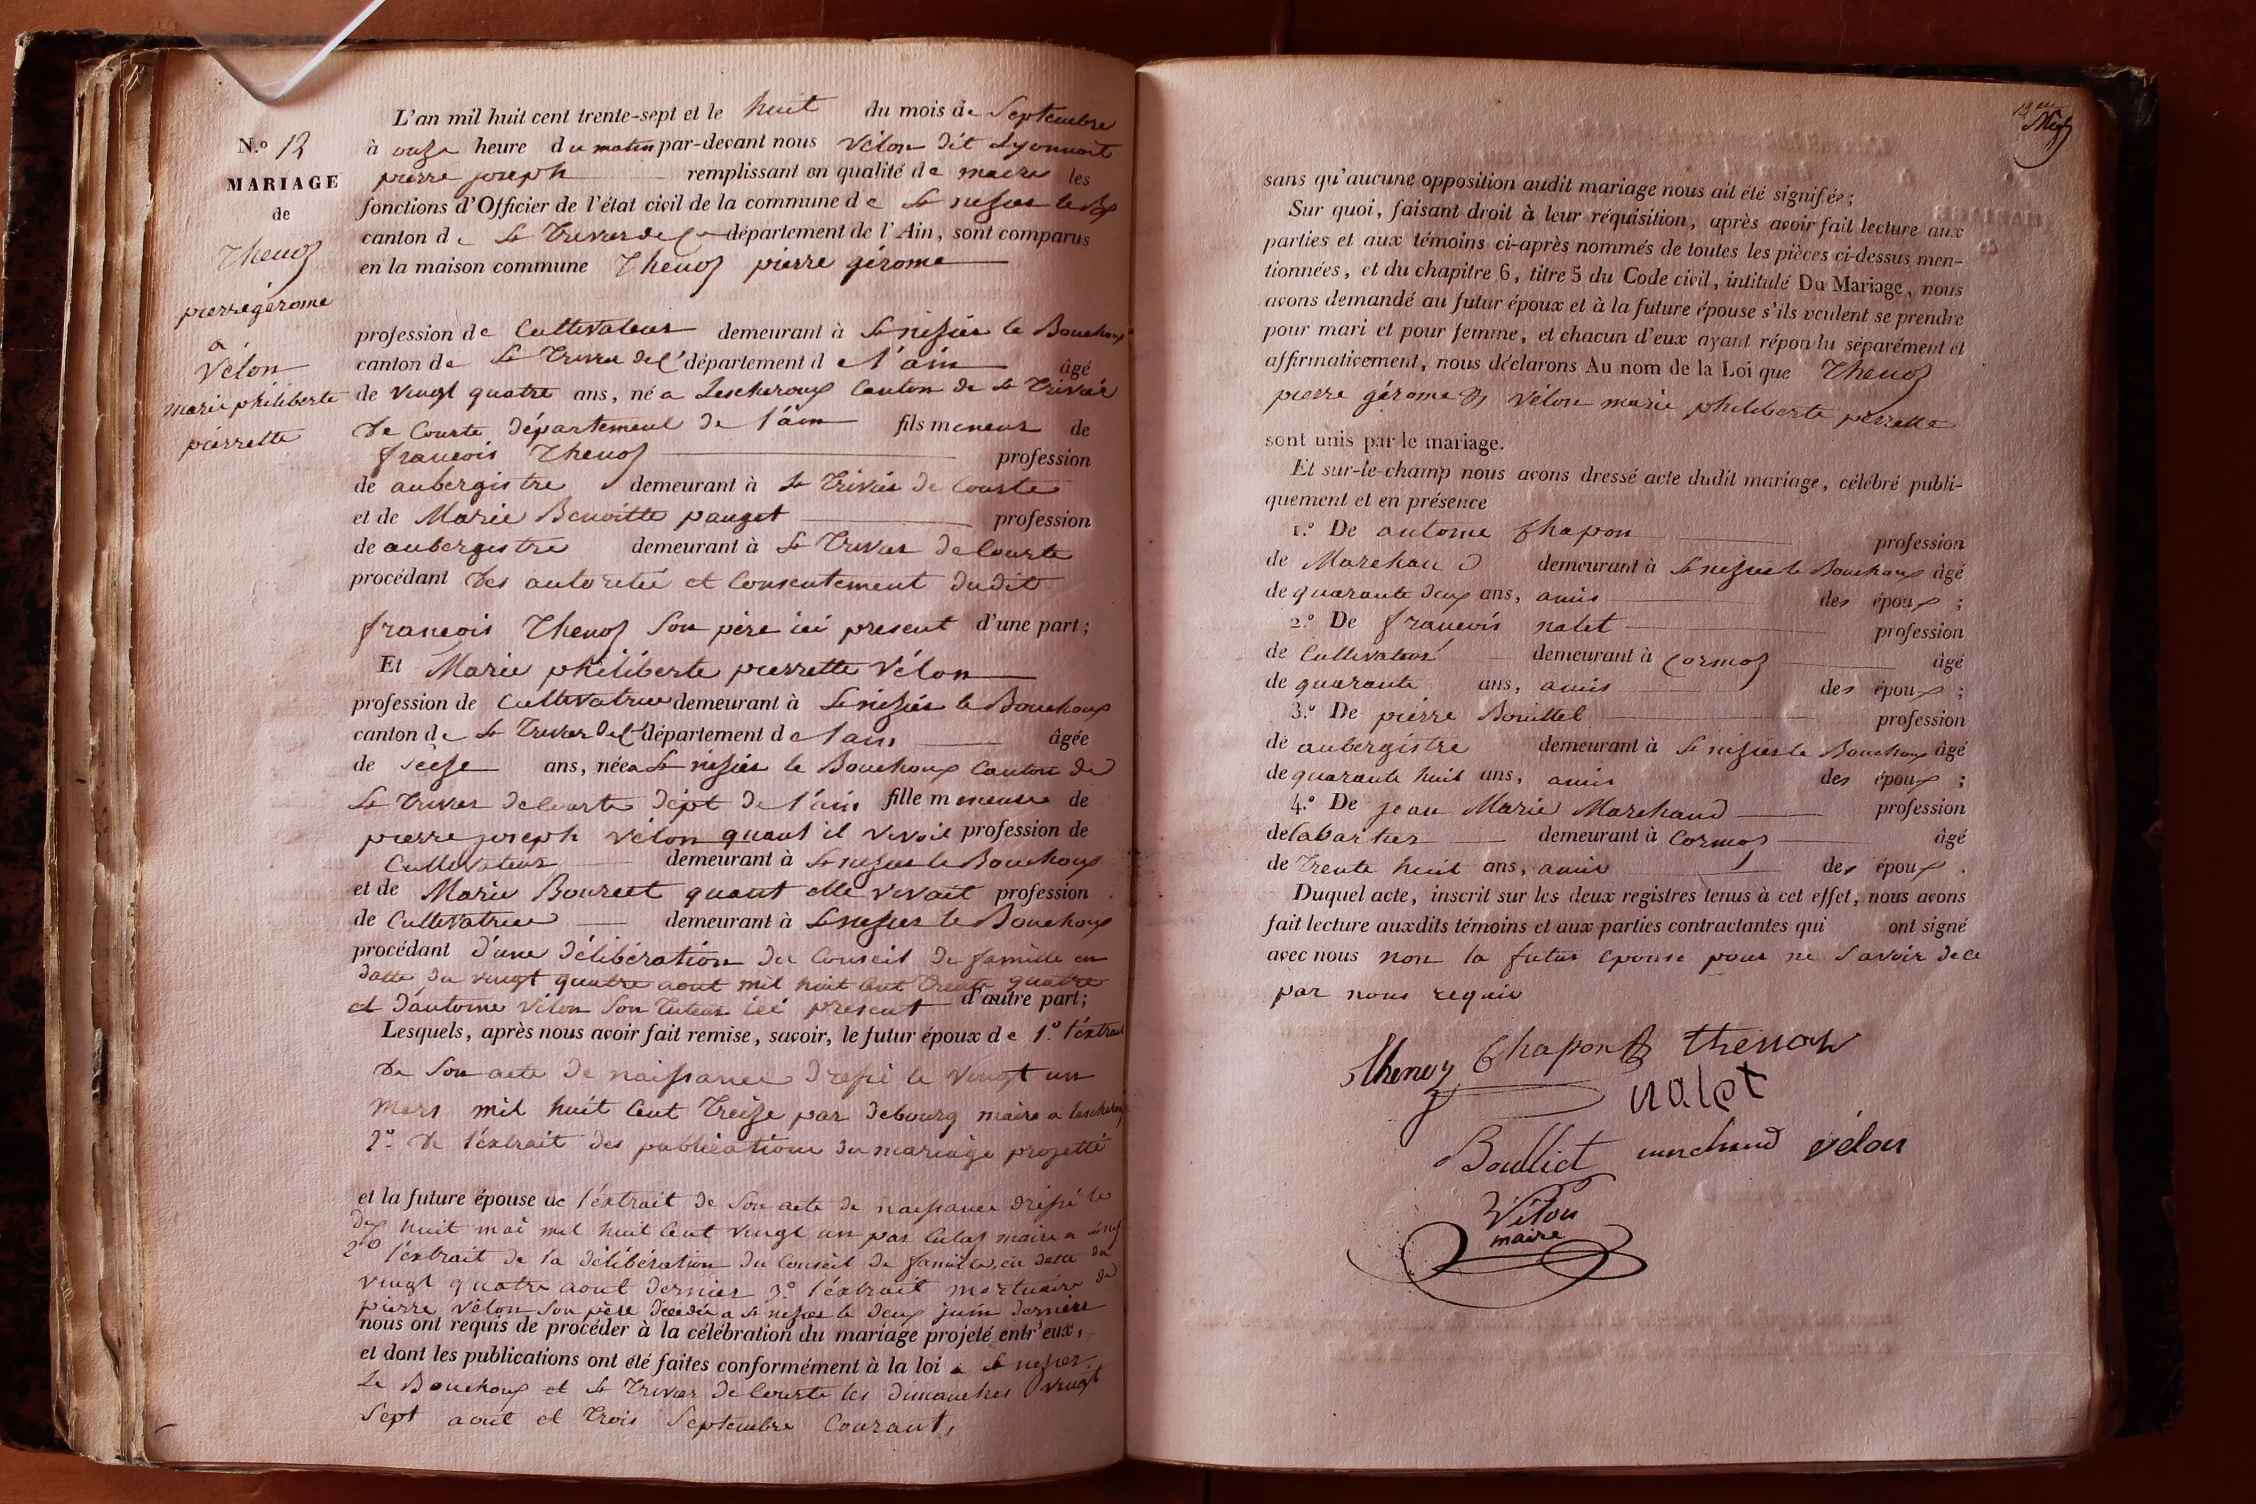 N.º 12
MARIAGE
de
Thenoz
pierre gérome
a
vélon
marie philiberte
pierrette
L'an mil huit cent trente-sept et le huit du mois de Septembre
à onze heure du matin par-devant nous vélon dit Lyonnoit
pierre joseph remplissant en qualité de maire les
fonctions d'Officier de l'état civil de la commune de St nizier le Bx
canton de St Trivier de C département de l'Ain, sont comparus
en la maison commune Thenoz pierre gérome
profession de Cultivateur demeurant à St nizier le Bouchoux
canton de St Trivier de C département de l'ain âgé
de vingt quatre ans, né a Lescheroux Canton de St Trivier
de Courte département de l'ain fils mineur de
francois Thenoz profession
de aubergistre demeurant à St Trivier de Courte
et de Marie Benoitte pauget profession
de aubergistre demeurant à St Trivier de Courte
procédant des autoritée et Consentement dudit
francois Thenoz son père ici present d'une part;
Et Marie philiberte pierrette vélon
profession de cultivatrice demeurant à St nizier le Bouchoux
canton de St Trivier de C département de l'ain âgée
de seize ans, née a St nizier le Bouchoux Canton de
St Trivier de Courte dépt de l'ain fille mineure de
pierre joseph vélon quant il vivoit profession de
Cultivateur demeurant à St nizier le Bouchoux
et de Marie Bourcet quant elle vivait profession
de Cultivatrice demeurant à St nizier le Bouchoux
procédant d'une délibération du Conseil de famille en
datte du vingt quatre aout mil huit Cent trente quatre
et d'antoine vélon son tuteur ici present d'autre part;
Lesquels, après nous avoir fait remise, savoir, le futur époux de 1º l'éxtrait
de Son acte de naissance dressé le vingt un
mars mil huit Cent treize par debourg maire a lescheroux
2º de l'éxtrait des publications du mariage projetté
et la future épouse de l'éxtrait de Son acte de naissance dressé le
dix huit mai mil huit Cent vingt un par maire a
2º l'éxtrait de la délibération du Conseil de famille, en date du
vingt quatre aout dernier 3º l'éxtrait mortuaire de
pierre vélon son père décédée a St nizier le deux juin dernière
nous ont requis de procéder à la célébration du mariage projeté entr'eux,
et dont les publications ont été faites conformément à la loi a St nizier
Le Bouchoux et St Trivier de Courte les dimanches vingt
Sept aout et trois Septembre Courant,
sans qu'aucune opposition audit mariage nous ait été signifée;
Sur quoi, faisant droit à leur réquisition, après avoir fait lecture aux
parties et aux témoins ci-après nommés de toutes les pièces ci-dessus men-
tionnées, et du chapitre 6, titre 5 du Code civil, intitulé Du Mariage, nous
avons demandé au futur époux et à la future épouse s'ils veulent se prendre
pour mari et pour femme, et chacun d'eux ayant répondu séparément et
affirmativement, nous déclarons Au nom de la Loi que Thenoz
pierre gérome & vélon marie philiberte pierrette
sont unis par le mariage.
Et sur-le-champ nous avons dressé acte dudit mariage, célébré publi-
quement et en présence
1.º De antoine Chapon profession
de Marchand demeurant à St nizier le Bouchoux âgé
de quarante deux ans, amis des époux;
2.º De francois nalet profession
de Cultivateur demeurant à Cormoz âgé
de quarante ans, amis des époux;
3.º De pierre Bouillet profession
de aubergistre demeurant à St nizier le Bouchoux âgé
de quarante huit ans, amis des époux;
4.º De jean Marie Marchand profession
de labartier demeurant à Cormoz âgé
de trente huit ans, amis des époux.
Duquel acte, inscrit sur les deux registres tenus à cet effet, nous avons
fait lecture auxdits témoins et aux parties contractantes qui ont signé
avec nous non la futur epouse pour ne savoir de ce
par nous requis
thenoz Chapon thenoz
nalet
Boullict marchand vélon
Vélon
maire